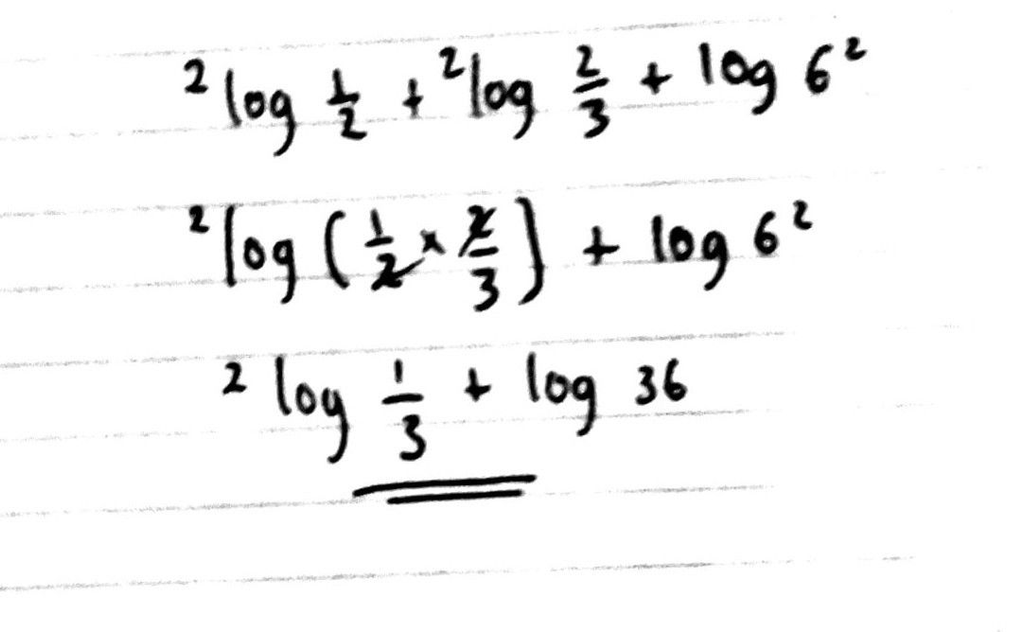 ² log 1/2 + ² log 2/3 + log 6²
² log (1/2 × 2/3) + log 6²
² log 1/3 + log 36